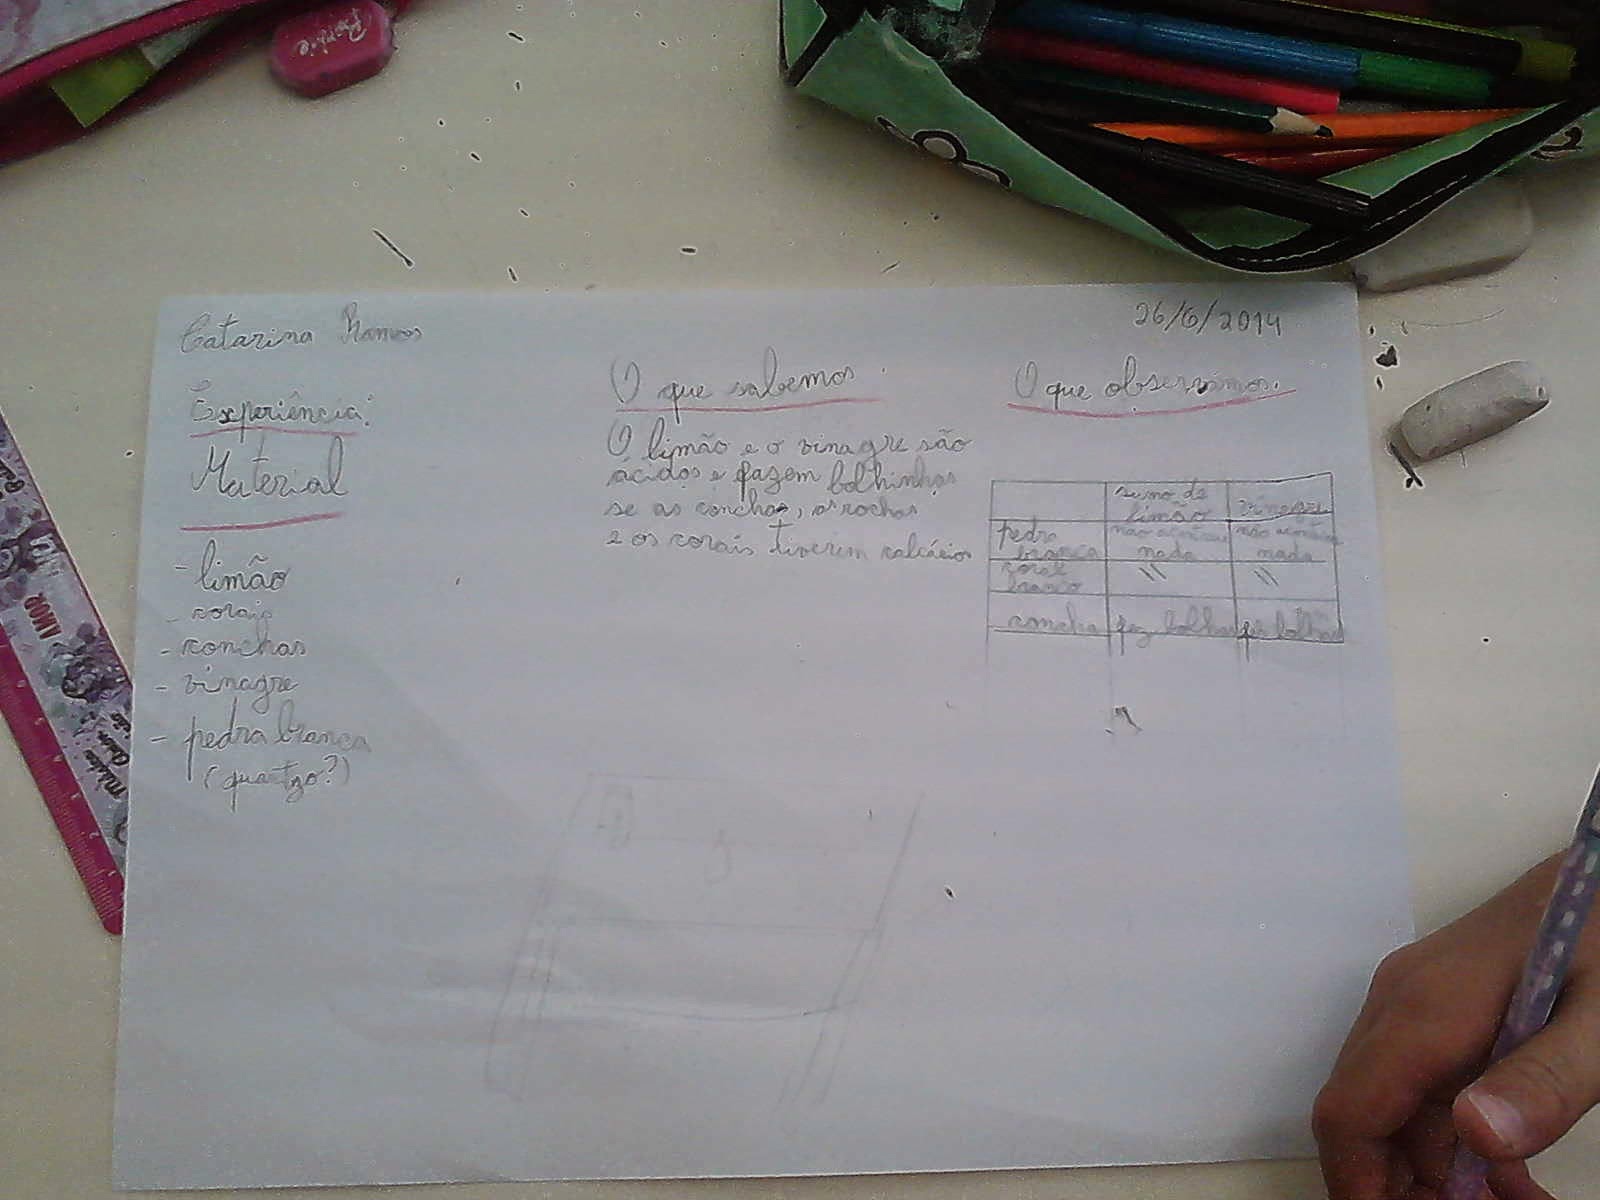 Catarina Ramos
26/6/2014
Experiência:
Material
- limão
- corais
- conchas
- vinagre
- pedra branca
(quartzo?)
O que sabemos.
O limão e o vinagre são
ácidos e fazem bolhinhas
se as conchas, as rochas
e os corais tiverem calcário
O que observámos.
sumo de
limão
vinagre
pedra
branca
não aconteceu
nada
não aconteceu
nada
coral
branco
"
"
concha
fez bolhas
fez bolhas
Barbie
AMOR